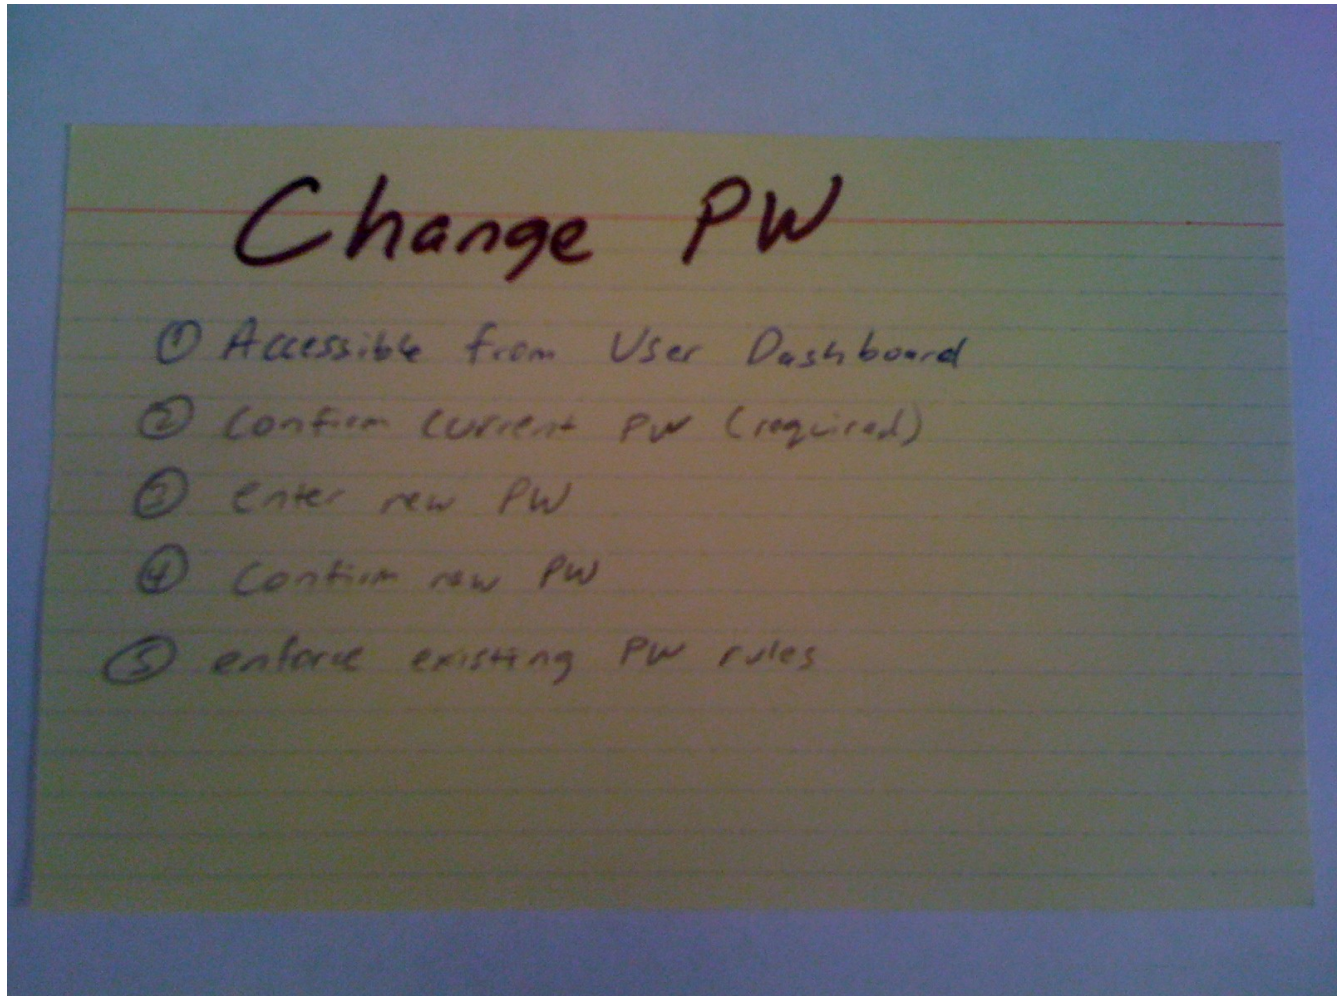 Change PW
① Accessible from User Dashboard
② Confirm current PW (required)
③ enter new PW
④ Confirm new PW
⑤ enforce existing PW rules